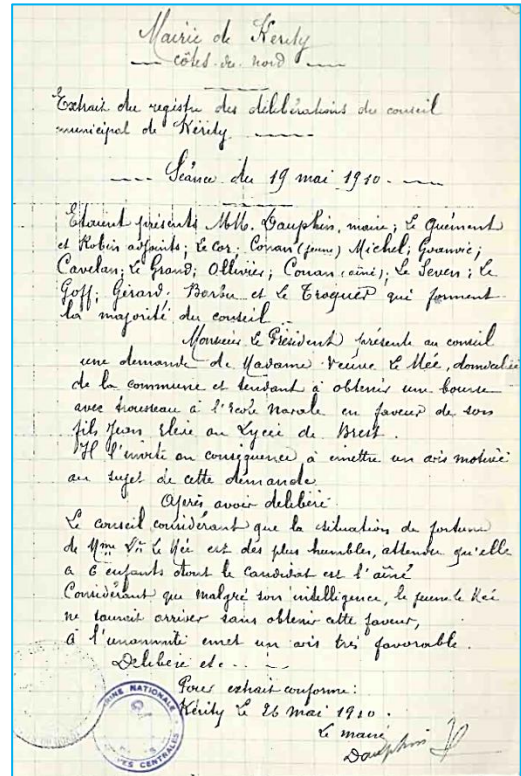 Mairie de Kérity
côtes-du-nord
Extrait du registre des délibérations du conseil
municipal de Kérity
Séance du 19 mai 1910
Etaient présents MM. Dauphin, maire; Le Quément
et Robin adjoints; Le Cor; Conan (jeune) Michel; Goanvic;
Cavelan; Le Grand; Ollivier; Conan (aîné); Le Seven; Le
Goff; Gérard; Barbu et Le Troquer qui forment
la majorité du conseil
Monsieur le Président présente au conseil
une demande de Madame Veuve Le Mée, domiciliée
de la commune et tendant à obtenir une bourse
avec trousseau à l'Ecole navale en faveur de son
fils Jean Elève au Lycée de Brest.
Il l'invite en conséquence à emettre un avis motivé
au sujet de cette demande
Après avoir délibéré
Le conseil considérant que la situation de fortune
de Mme Vve Le Mée est des plus humbles, attendu qu'elle
a 6 enfants dont le candidat est l'aîné
Considérant que malgré son intelligence, le jeune Le Mée
ne saurait arriver sans obtenir cette faveur,
à l'unanimité emet un avis très favorable.
Délibéré etc...
Pour extrait conforme:
Kérity le 26 mai 1910.
Le maire
Dauphin
MARINE NATIONALE
ARCHIVES CENTRALES